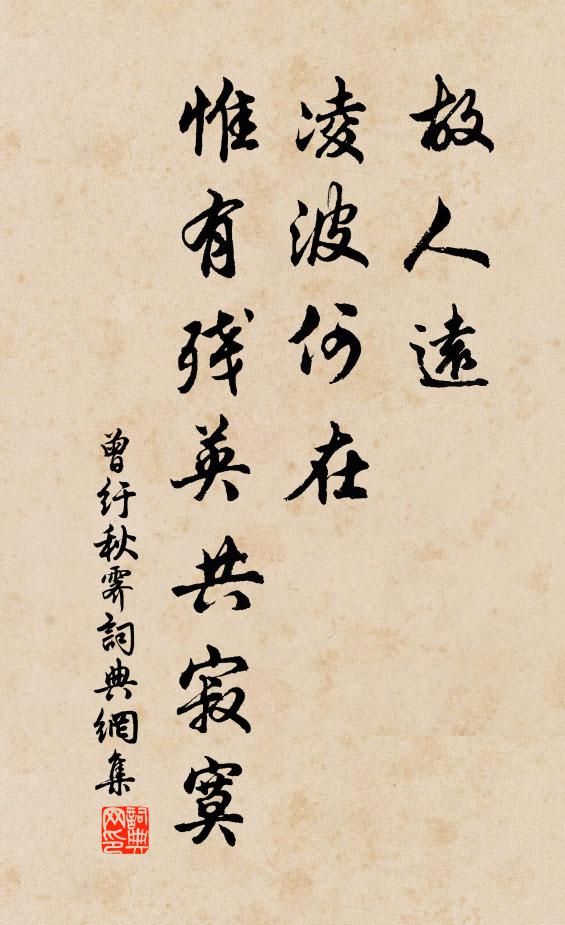 故人遠
凌波何在
惟有残英共寂寞
曾纡秋霁詞典網集
詞典
网印